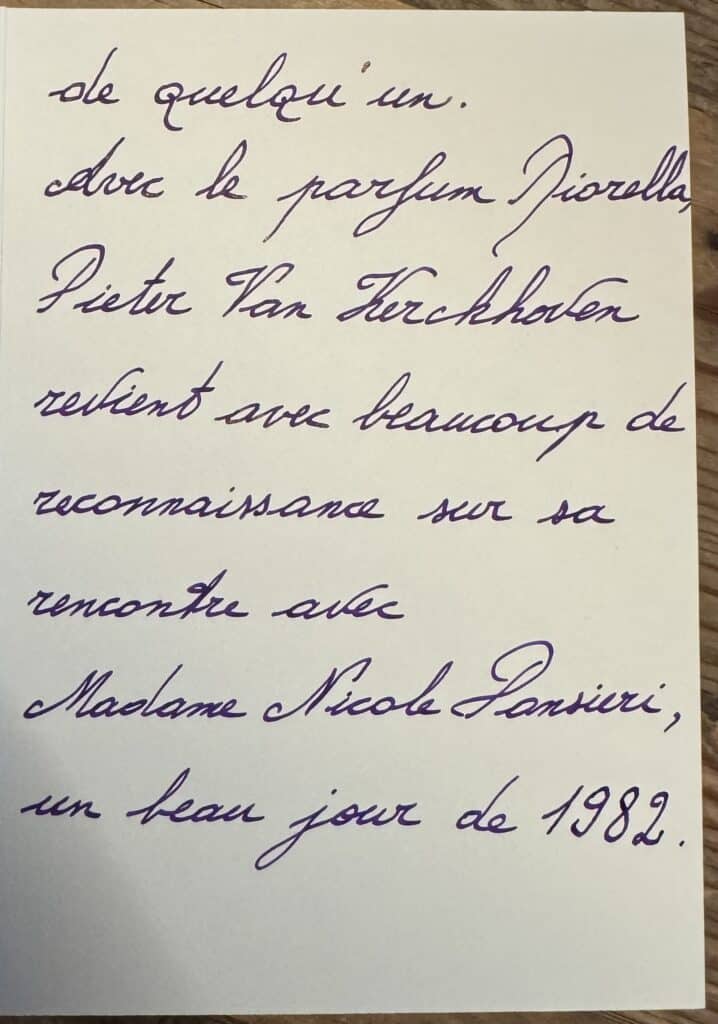 de quelqu'un.
Avec le parfum Diorella,
Pieter Van Kerckhoven
revient avec beaucoup de
reconnaissance sur sa
rencontre avec
Madame Nicole Pansieri,
un beau jour de 1982.